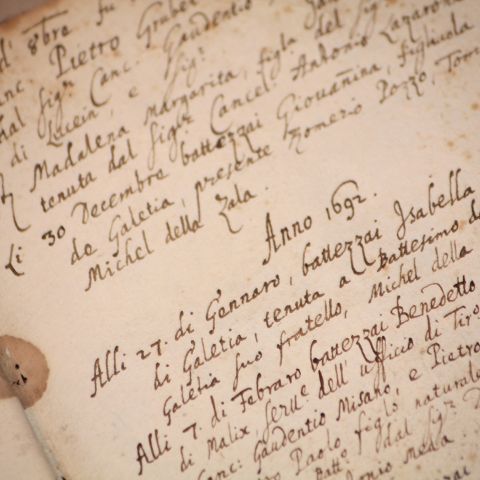 d' 8bre fu
Canc. Pietro Gruber
dal Sigr. Canc. Gaudentio
di Lucein, e Sigr.
Madalena Margarita, figla del Sigr.
tenuta dal Sigr. Cancel. Antonio Lazarone
Li 30 Decembre battezzai Giovañina, figliuola
de Galetia, presente Romerio Pozzo, Tom
Michel della Zala.
Anno 1692.
Alli 27. di Gennaro, battezzai Isabella
di Galetia, tenuta a Battesimo da
Galetia suo fratello, Michel della
Alli 7. di Febraro battezzai Benedetto
di Malix servе dell' ufficio di Tiro
Canc: Gaudentio Misano, e Pietro
Paolo figlo naturale
Batto. dal Sigr.
Antonio Mena.